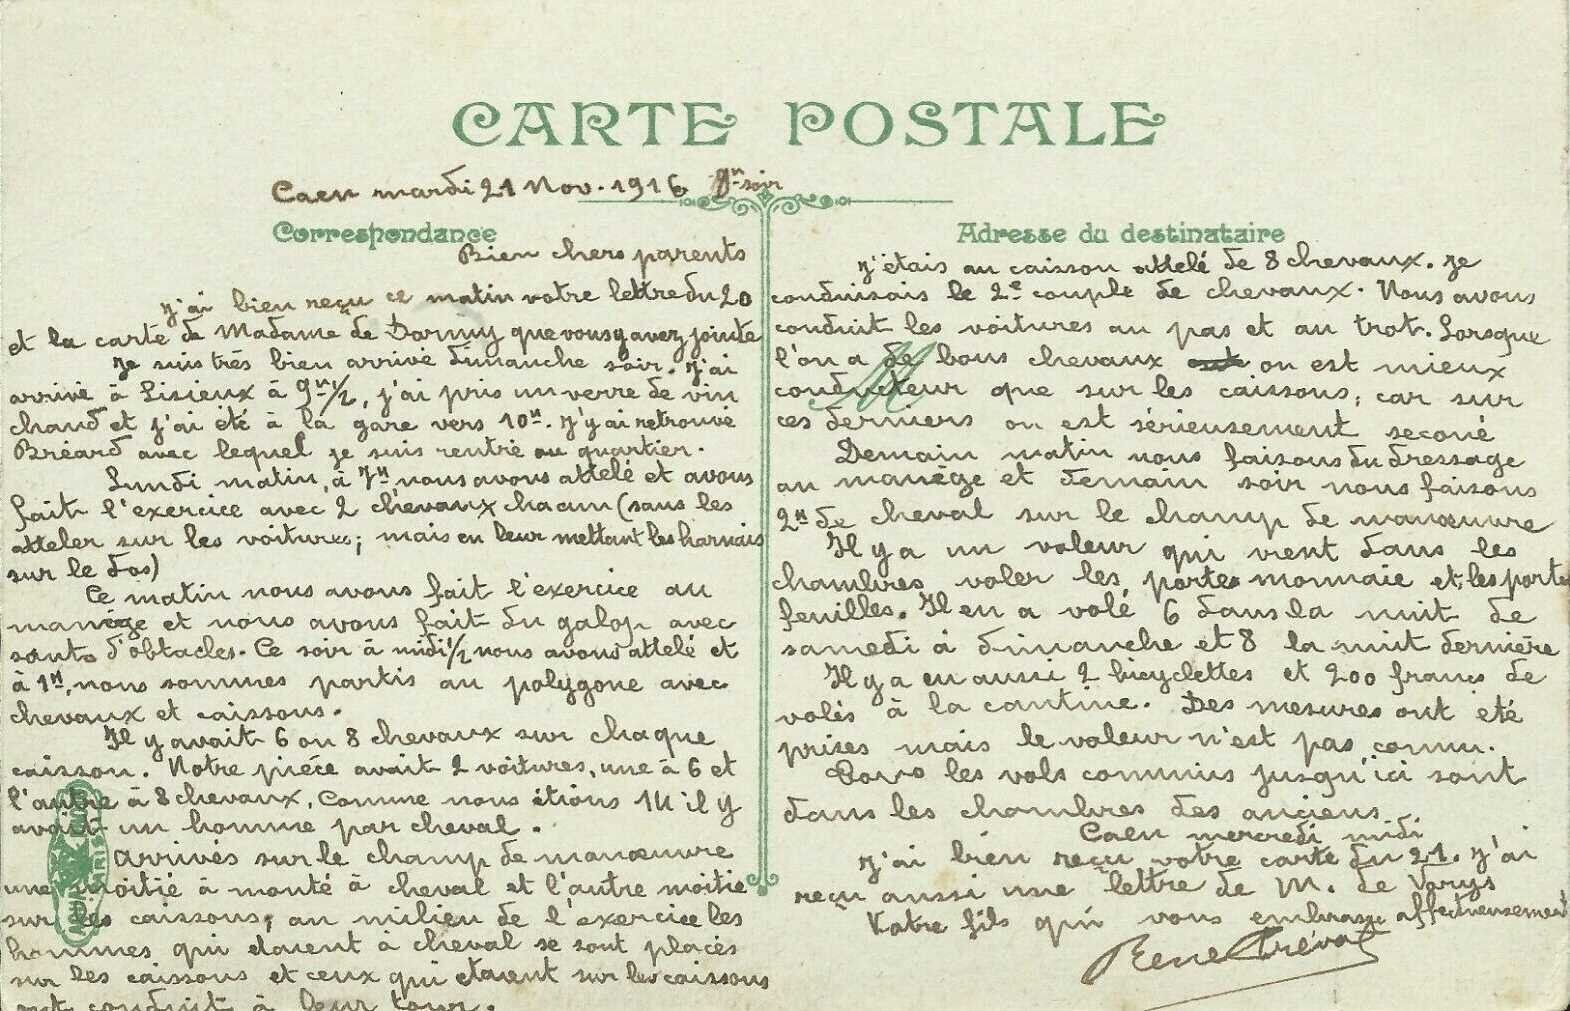 CARTE POSTALE
Caen mardi 21 Nov. 1916 soir
Correspondance
Bien chers parents
J'ai bien reçu ce matin votre lettre du 20
et la carte de Madame de que vous y avez jointe
Je suis très bien arrivé dimanche soir. J'ai
arrivé à Lisieux à 9h 1/2, j'ai pris un verre de vin
chaud et j'ai été à la gare vers 10h. J'y ai retrouvé
Bréard avec lequel je suis rentré au quartier.
Lundi matin, à 7h nous avons attelé et avons
fait l'exercice avec 2 chevaux chacun (sans les
atteler sur les voitures; mais en leur mettant les harnais
sur le dos)
Ce matin nous avons fait l'exercice au
manège et nous avons fait du galop avec
sauts d'obtacles. Ce soir à midi 1/2 nous avons attelé et
à 1h, nous sommes partis au polygone avec
chevaux et caissons.
Il y avait 6 ou 8 chevaux sur chaque
caisson. Notre pièce avait 2 voitures, une à 6 et
l'autre à 8 chevaux, comme nous étions 14 il y
avait un homme par cheval.
Arrivés sur le champ de manœuvre
une moitié à monté à cheval et l'autre moitié
sur les caissons, au milieu de l'exercice les
hommes qui étaient à cheval se sont placés
sur les caissons et ceux qui étaient sur les caissons
ont conduit à leur tour.
Adresse du destinataire
J'étais au caisson attelé de 8 chevaux. Je
conduisais le 2e couple de chevaux. Nous avons
conduit les voitures au pas et au trot. Lorsque
l'on a de bons chevaux on est mieux
conducteur que sur les caissons, car sur
ces derniers on est sérieusement secoué
Demain matin nous faisons du dressage
au manège et demain soir nous faisons
2h de cheval sur le champ de manœuvre
Il y a un voleur qui vient dans les
chambres voler les porte monnaie et les porte
feuilles. Il en a volé 6 dans la nuit de
samedi à dimanche et 8 la nuit dernière
Il y a eu aussi 2 bicyclettes et 200 francs de
volés à la cantine. Des mesures ont été
prises mais le voleur n'est pas connu.
les vols commis jusqu'ici sont
dans les chambres des anciens
Caen mercredi midi
J'ai bien reçu votre carte du 21. J'ai
reçu aussi une lettre de M. de Varys
Votre fils qui vous embrasse affectueusement
René Tréval